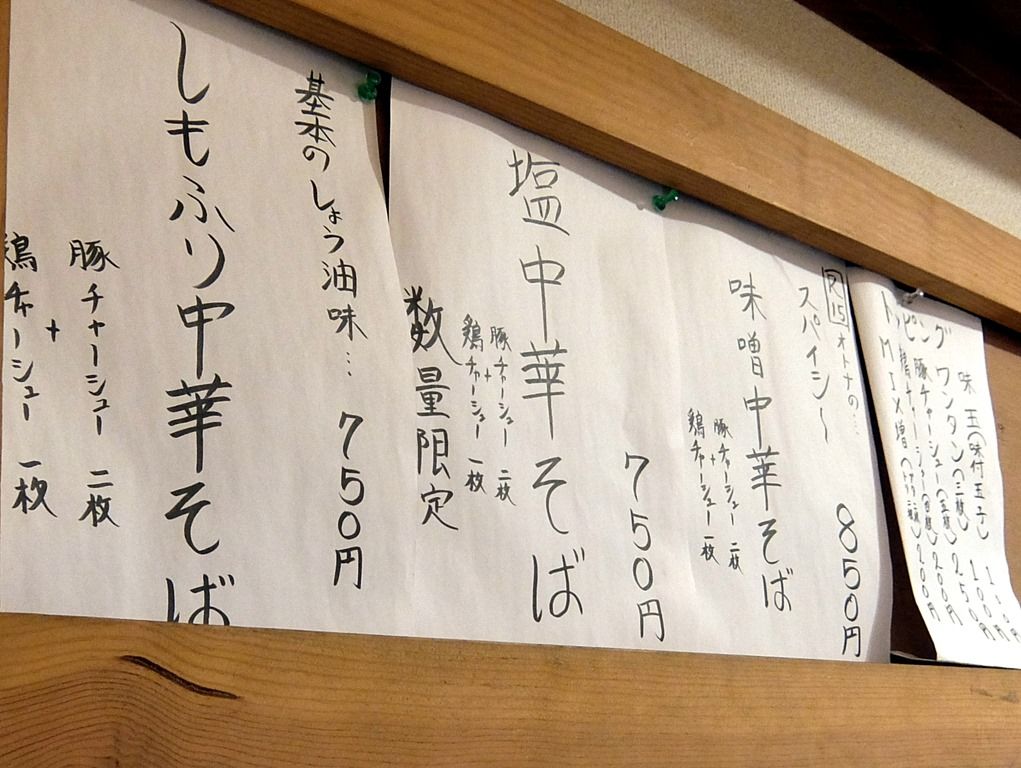 トッピング
味玉(味付玉子)
ワンタン(三枚) 100円
豚チャーシュー(五枚) 250円
200円
200円
R-15 オトナの…
スパイシ〜 850円
味噌中華そば
豚チャーシュー 二枚
+
鶏チャーシュー 一枚
750円
塩中華そば
豚チャーシュー 二枚
+
鶏チャーシュー 一枚
数量限定
基本のしょう油味… 750円
しもふり中華そば
豚チャーシュー 二枚
+
鶏チャーシュー 一枚